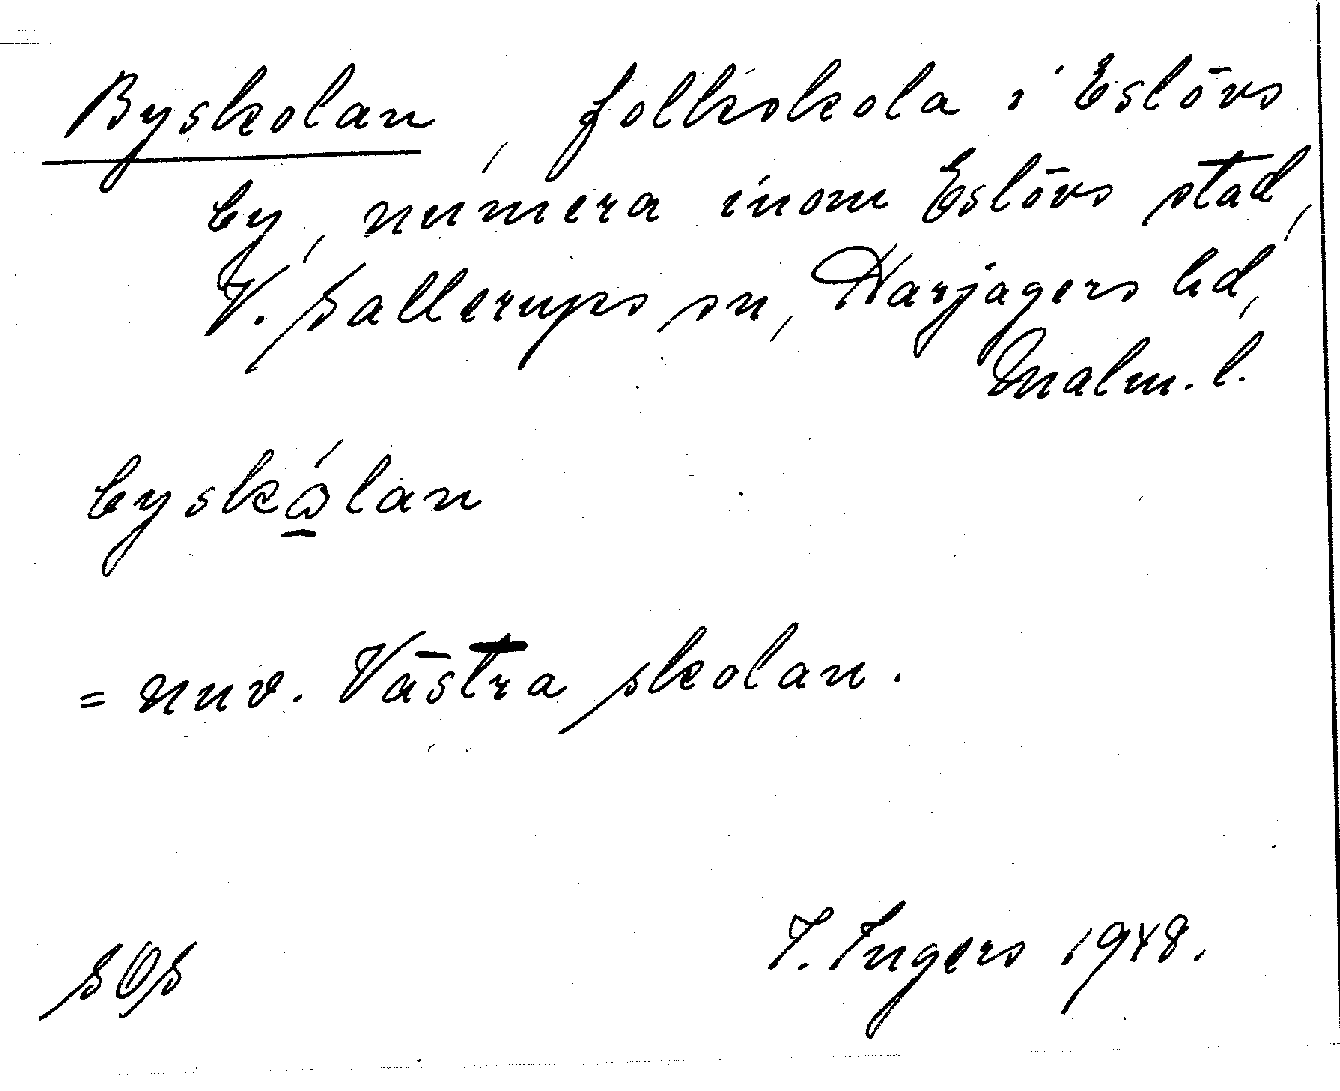 Byskolan, folkskola i Eslövs
by, numera inom Eslövs stad,
V. Sallerups sn, Harjagers hd,
Malm. l.
byskɷ́lan
= nuv. Västra skolan.
I. Ingers 1948.
SOS